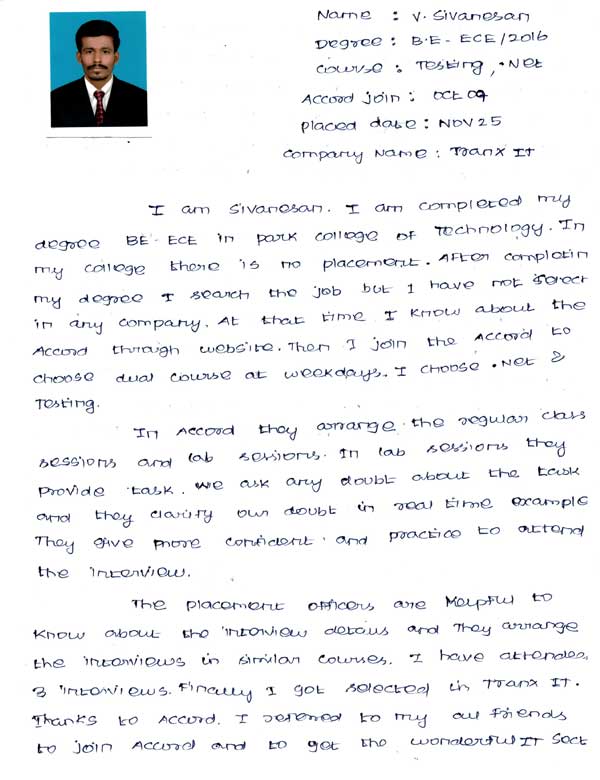 Name : V. Sivanesan
Degree : B.E - ECE / 2016
Course : Testing, .Net
Accord join : OCT 09
Placed date : NOV 25
Company Name : Tranx IT
I am Sivanesan. I am completed my
degree BE-ECE in park college of Technology. In
my college there is no placement. After completin
my degree I search the job but I have not select
in any company. At that time I know about the
Accord through website. Then I join the Accord to
choose dual course at weekdays. I choose .Net &
Testing.
In Accord they arrange the regular class
sessions and lab sessions. In lab sessions they
provide task. We ask any doubt about the task
and they clarify our doubt in real time example
They give more confident and practice to attend
the interview.
The placement officers are helpful to
know about the interview details and they arrange
the interviews in similar courses. I have attended
3 interviews. Finally I got selected in Tranx IT.
Thanks to Accord. I referred to my all friends
to join Accord and to get the wonderful IT Sect